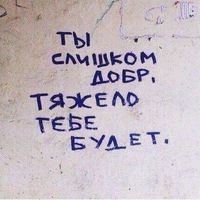 ТЫ
СЛИШКОМ
ДОБР,
ТЯЖЕЛО
ТЕБЕ
БУДЕТ.